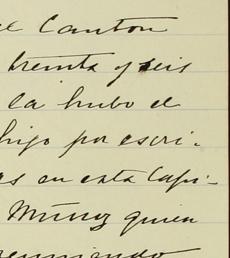 el Canton
treinta y seis
la hubo el
hijo por escri-
as en esta Capi-
Muñoz quien
reuniendo